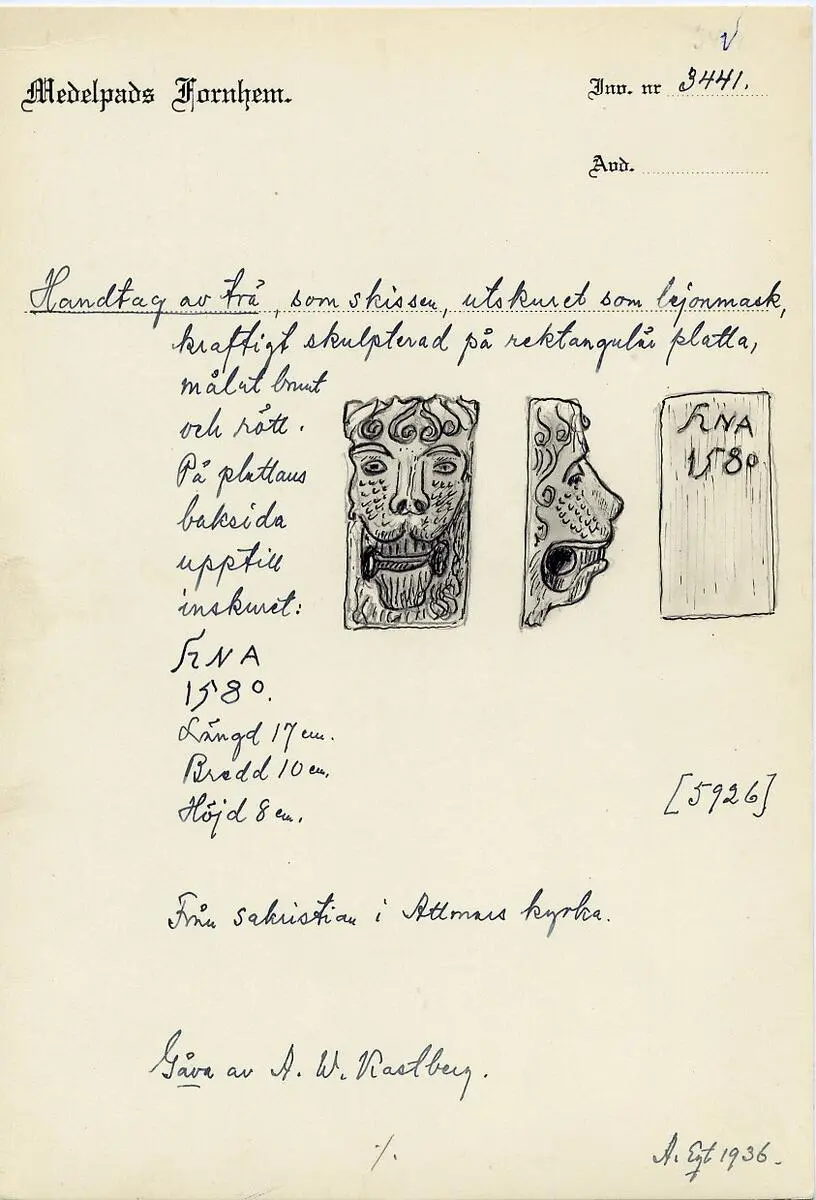 Medelpads Fornhem.
Inv. nr 3441.
Avd.
Handtag av trä, som skissen, utskuret som lejonmask,
kraftigt skulpterad på rektangulär platta,
målat brunt
och rött.
På plattans
baksida
upptill
inskuret:
HNA
1580.
Längd 17 cm.
Bredd 10 cm.
Höjd 8 cm.
HNA
1580
[5926]
Från sakristian i Attmars kyrka.
Gåva av A. W. Kastberg.
A. 1936.